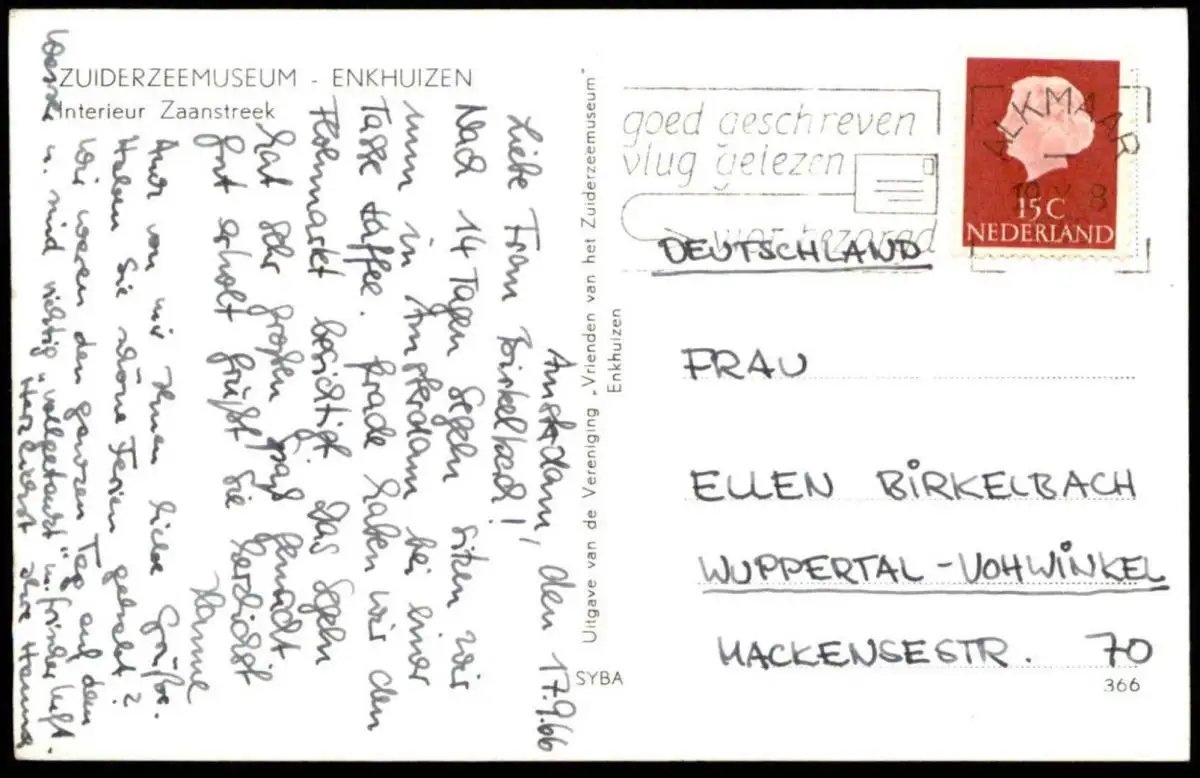 ZUIDERZEEMUSEUM - ENKHUIZEN
Interieur Zaanstreek
Amsterdam, den 17.9.66
Liebe Frau Birkelbach!
Nach 14 Tagen Segeln sitzen wir
nun in Amsterdam bei einer
Tasse Kaffee. Grade haben wir den
Flohmarkt besichtigt. Das Segeln
hat sehr großen Spaß gemacht
Gut erholt grüßt Sie herzlichst
Hanne
Auch von mir Ihnen liebe Grüße.
Haben Sie schöne Ferien gehabt?
Wir waren den ganzen Tag auf dem
Wasser u. sind richtig "vollgetankt" m. frischer Luft.
Herzlichst Ihre Hanna
Uitgave van de Vereniging „Vrienden van het Zuiderzeemuseum"
Enkhuizen
SYBA
goed geschreven
vlug gelezen
bezorgd
ALKMAAR
15C
NEDERLAND
DEUTSCHLAND
FRAU
ELLEN BIRKELBACH
WUPPERTAL-VOHWINKEL
MACKENSESTR. 70
366